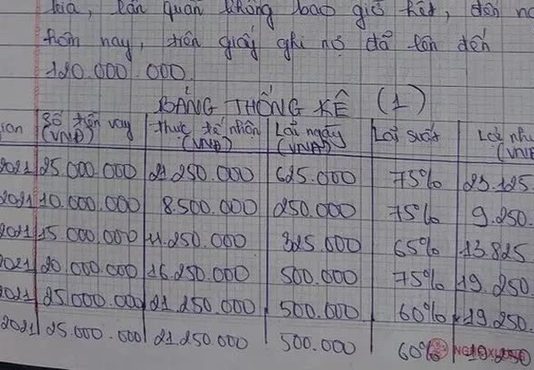 kia, lẩn quẩn không bao giờ hết, đến n
hôm nay, tiền giấy ghi nợ đã lên đến
120.000.000.
BẢNG THỐNG KÊ (1)
ian Số tiền vay (VNĐ) thực tế nhân (VNĐ) Lãi ngày (VNĐ) Lãi suất Lợi nhu (VNĐ
2021 25.000.000 21.250.000 625.000 75% 23.125
2021 10.000.000 8.500.000 250.000 75% 9.250.
2021 15.000.000 11.250.000 325.000 65% 13.825
2021 20.000.000 16.250.000 500.000 75% 19.250
2021 25.000.000 21.250.000 500.000 60% 19.250.
2021 25.000.000 21.250.000 500.000 60% 19.250